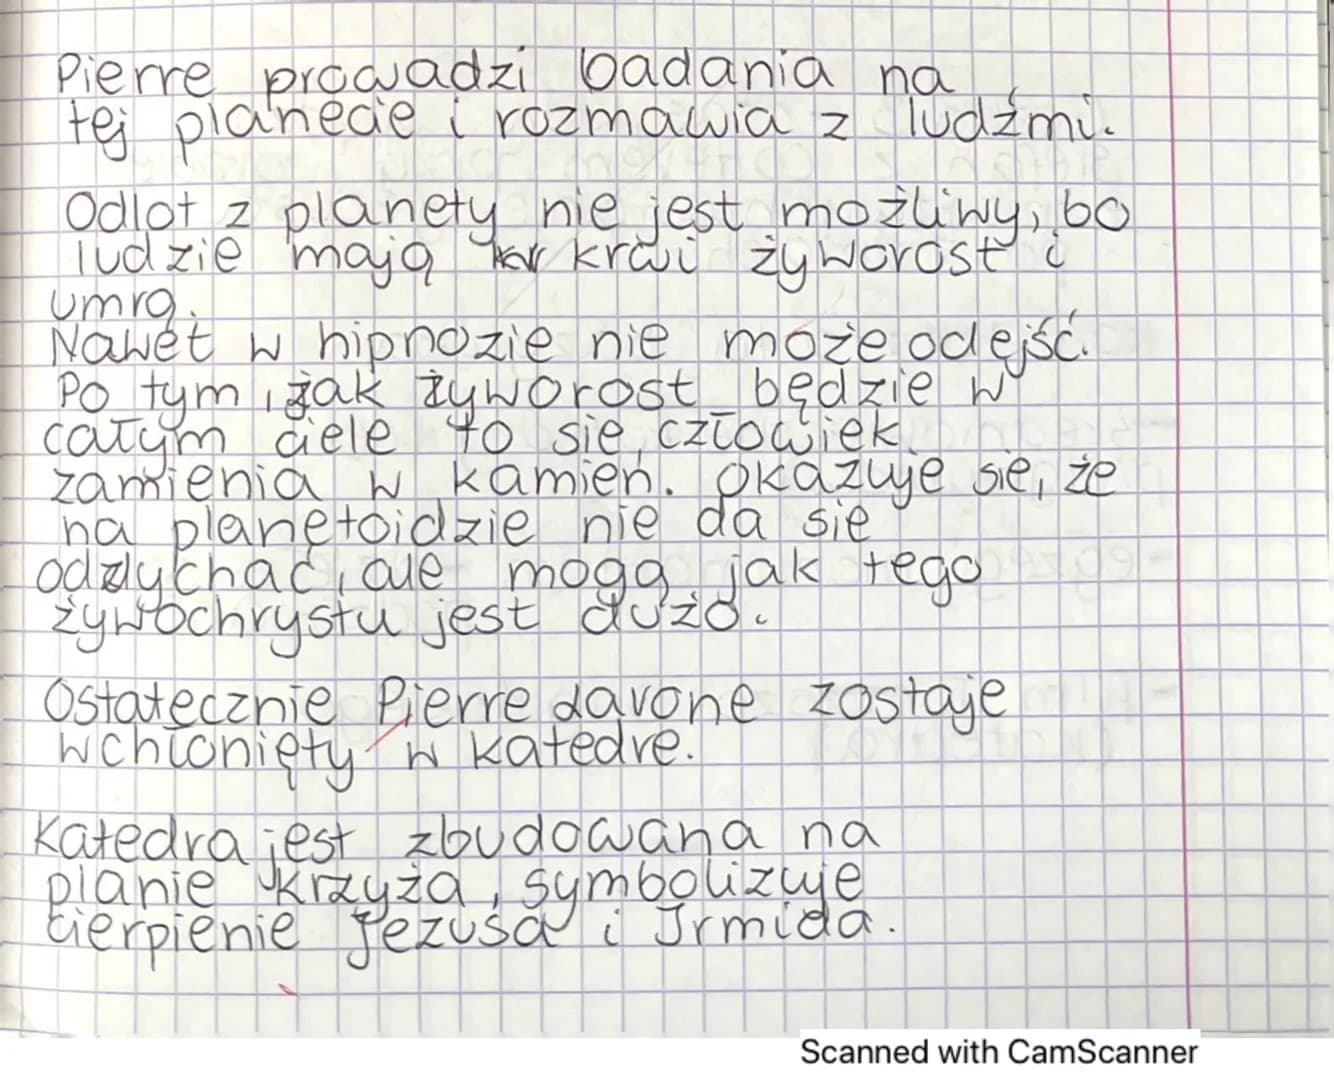 Pierre prowadzi badania na
tej planecie i rozmawia z ludźmi.
Odlot z planety nie jest możliwy, bo
ludzie mają krwi żyworost i
umrą.
Nawet w hipnozie nie może odejść.
Po tym, jak żyworost będzie w
całym ciele to się człowiek
zamienia w kamień. Okazuje się, że
na planetoidzie nie da się
oddychać, ale mogą jak tego
żywochrystu jest dużo.
Ostatecznie Pierre Lavone zostaje
wchłonięty w katedrę.
Katedra jest zbudowana na
planie krzyża, symbolizuje
cierpienie Jezusa i Irmida.
Scanned with CamScanner